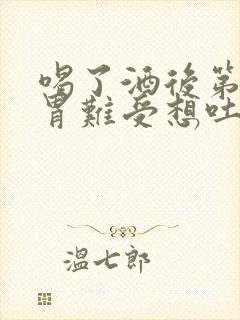 喝了酒後第
胃難受想吐
溫七郎